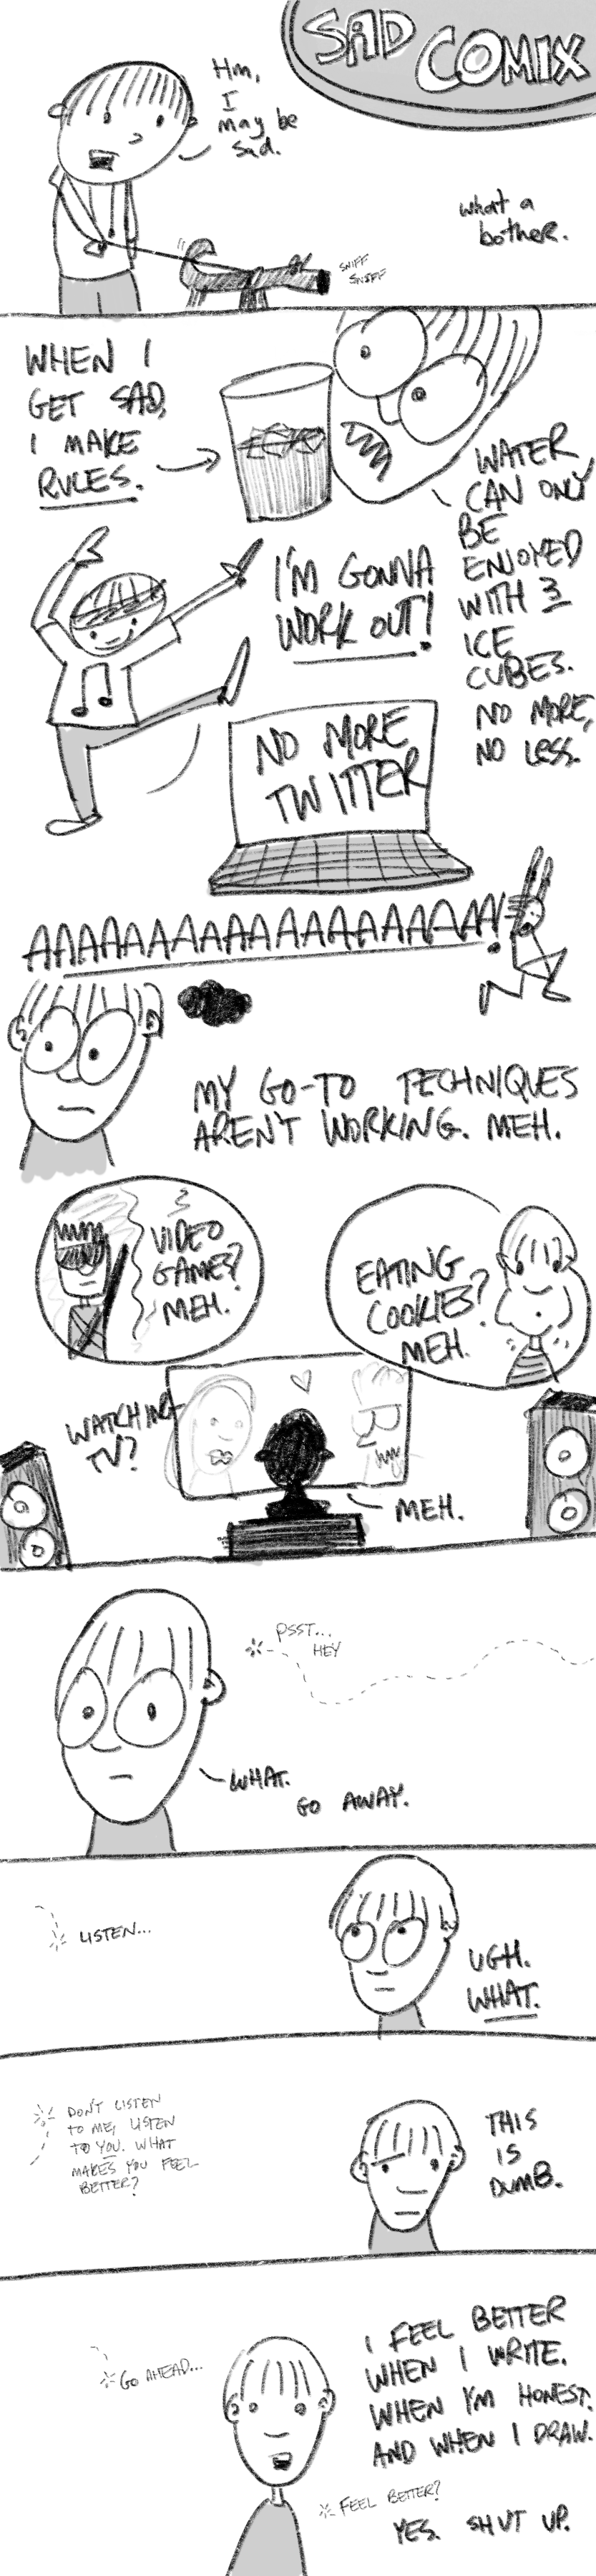 SAD
COMIX
Hm,
I
may be
sad.
what a
bother.
SNIFF
SNIFF
WHEN I
GET SAD,
I MAKE
RULES.
WATER
CAN ONLY
BE
ENJOYED
WITH 3
ICE
CUBES.
NO MORE,
NO LESS.
I'M GONNA
WORK OUT!
NO MORE
TWITTER
AAAAAAAAAAAAAAAAAAAA!
MY GO-TO TECHNIQUES
AREN'T WORKING. MEH.
VIDEO
GAMES?
MEH.
EATING
COOKIES?
MEH.
WATCHING
TV?
MEH.
PSST...
HEY
WHAT.
GO AWAY.
LISTEN...
UGH.
WHAT.
DON'T LISTEN
TO ME, LISTEN
TO YOU. WHAT
MAKES YOU FEEL
BETTER?
THIS
IS
DUMB.
GO AHEAD...
I FEEL BETTER
WHEN I WRITE.
WHEN I'M HONEST.
AND WHEN I DRAW.
FEEL BETTER?
YES. SHUT UP.